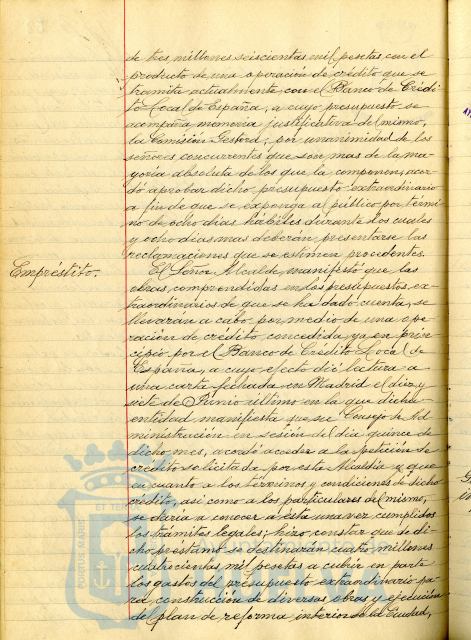 de tres millones seiscientas mil pesetas, con el
producto de una operación de crédito que se
tramita actualmente con el Banco de Crédi
to Local de España, a cuyo presupuesto se
acompaña memoria justificativa del mismo,
la Comisión Gestora, por unanimidad de los
señores concurrentes que son mas de la ma
yoría absoluta de los que la componen, acor
dó aprobar dicho presupuesto extraordinario
a fin de que se exponga al público por térmi
no de ocho días hábiles durante los cuales
y ocho días mas deberán presentarse las
reclamaciones que se estimen procedentes.
Empréstito.-
El Señor Alcalde manifestó que las
obras, comprendidas en los presupuestos, ex-
traordinarios de que se ha dado cuenta, se
llevarán a cabo por medio de una ope
ración de crédito concedida, ya en prin-
cipio por el Banco de Credito Local de
España, a cuyo efecto dió lectura a
una carta fechada en Madrid el diez y
siete de Junio último en la que dicha
entidad manifiesta que su Consejo de Ad
ministración en sesión del día quince de
dicho mes, acordó acceder a la petición de
crédito solicitada por esta Alcaldía y que
en cuanto a los términos y condiciones de dicho
crédito, así como a los particulares del mismo,
se daría a conocer a ésta una vez cumplidos
los trámites legales; hizo constar que de di-
cho prestamo se destinarán cuatro millones
cuatrocientas mil pesetas a cubrir en parte
los gastos del presupuesto extraordinario pa-
ra construcción de diversas obras y ejecución
del plan de reforma interior de la Ciudad,